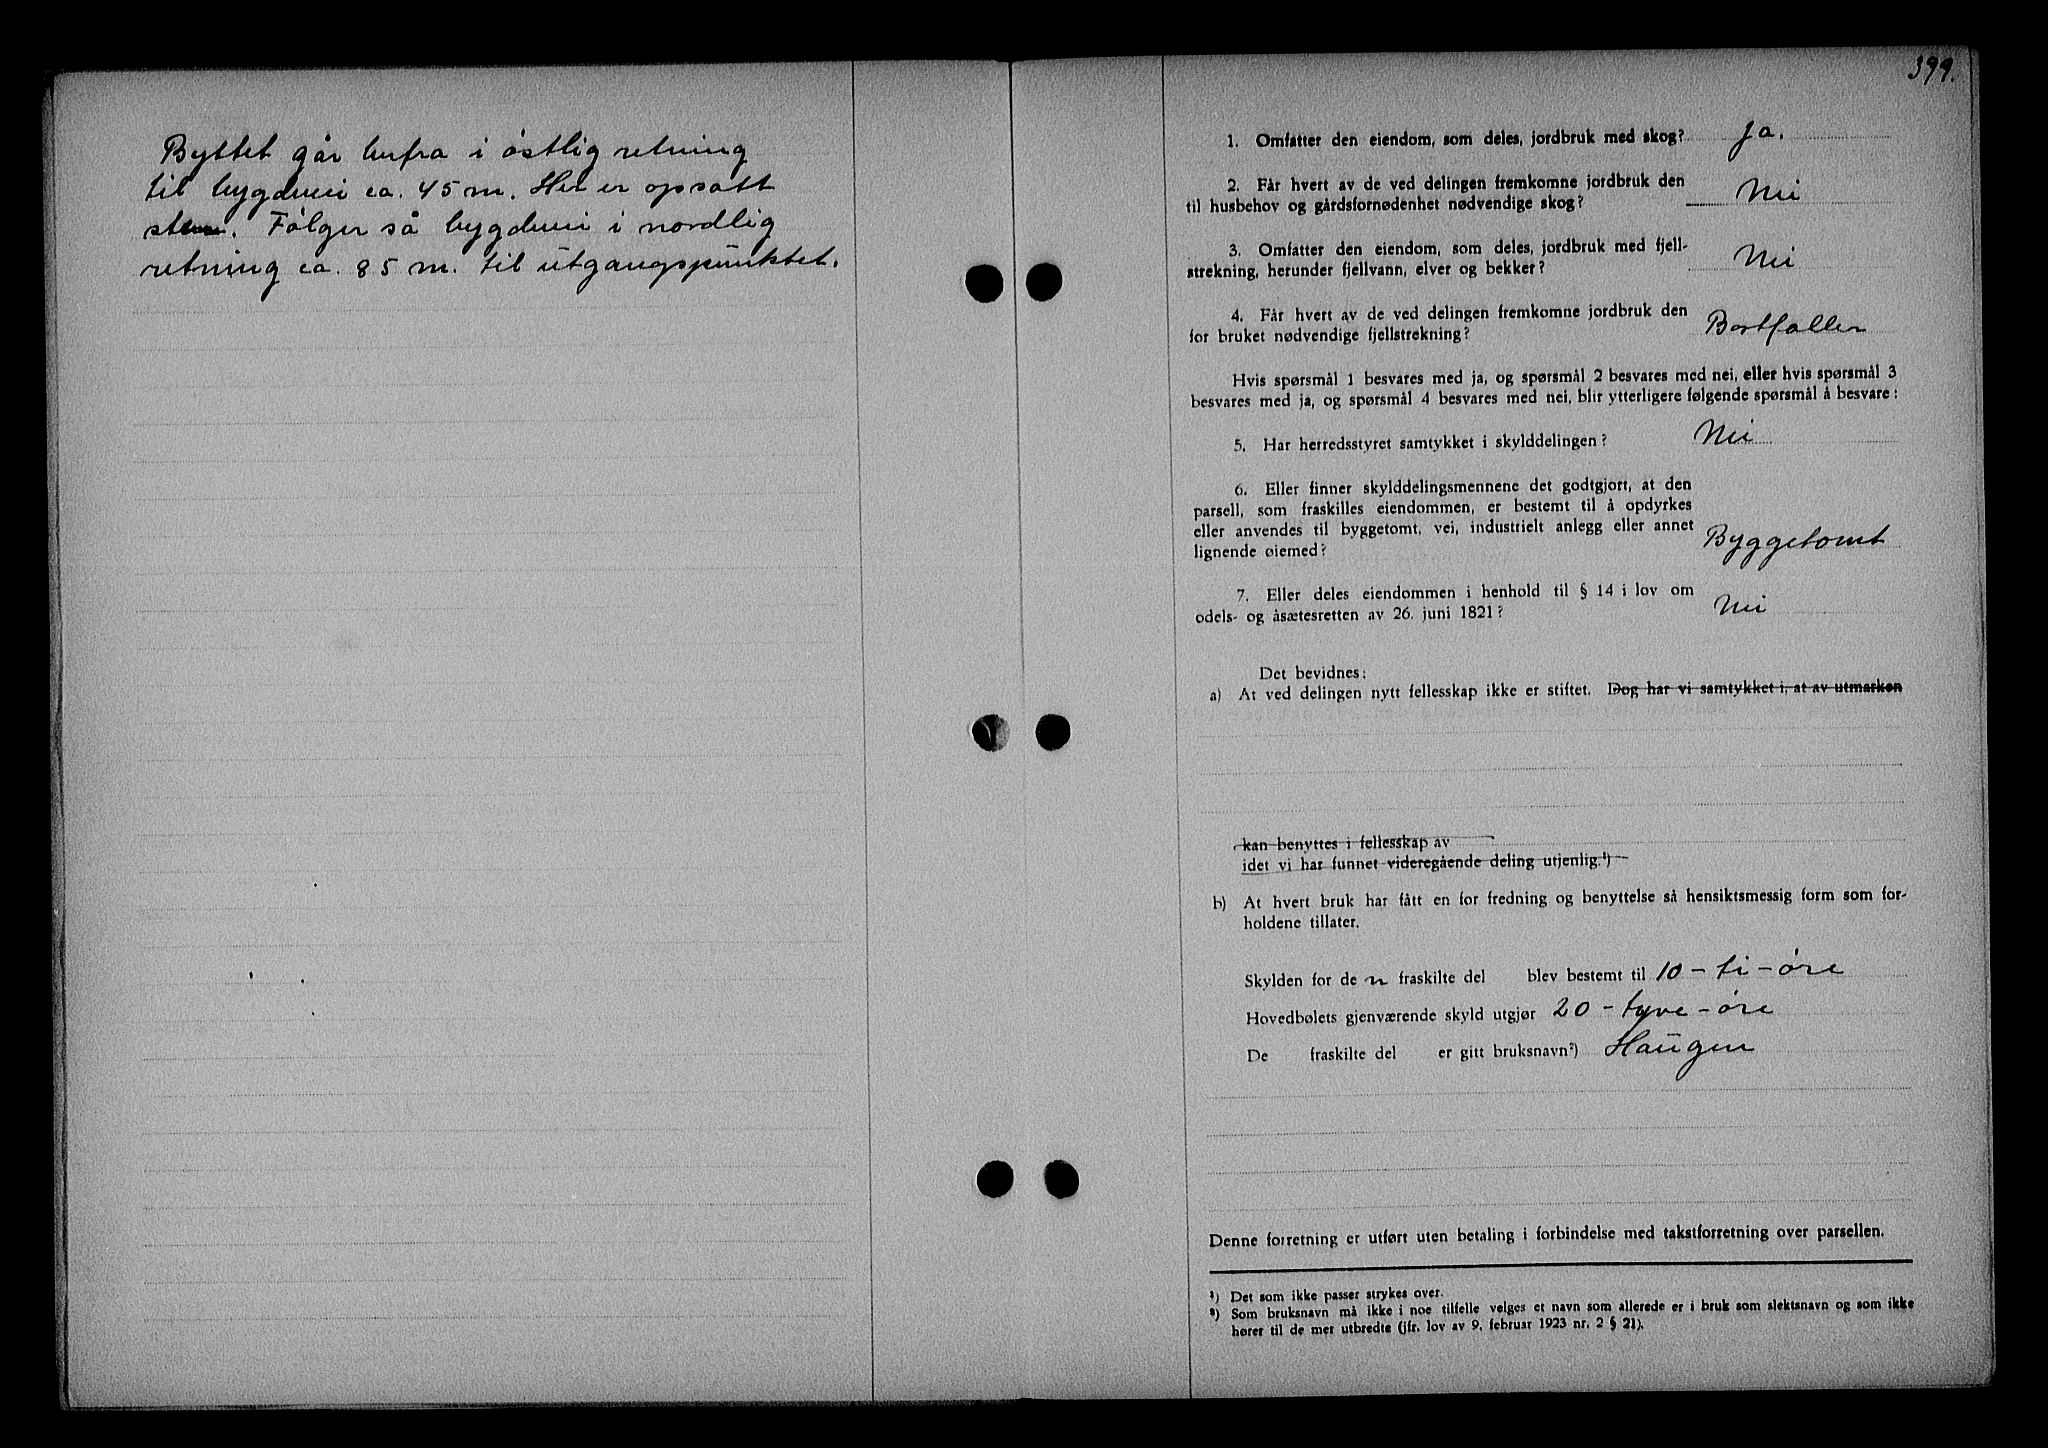 Byttet går herfra i östlig retning
til bygdevei ca. 45 m. Her er opsatt
sten. Følger så bygdevei i nordlig
retning ca. 85 m. til utgangspunktet.
399.
1. Omfatter den eiendom, som deles, jordbruk med skog? Ja.
2. Får hvert av de ved delingen fremkomne jordbruk den
til husbehov og gårdsfornødenhet nødvendige skog? Nei
3. Omfatter den eiendom, som deles, jordbruk med fjell-
strekning, herunder fjellvann, elver og bekker? Nei
4. Får hvert av de ved delingen fremkomne jordbruk den
for bruket nødvendige fjellstrekning? Bortfaller
Hvis spørsmål 1 besvares med ja, og spørsmål 2 besvares med nei, eller hvis spørsmål 3
besvares med ja, og spørsmål 4 besvares med nei, blir ytterligere følgende spørsmål å besvare:
5. Har herredsstyret samtykket i skylddelingen? Nei
6. Eller finner skylddelingsmennene det godtgjort, at den
parsell, som fraskilles eiendommen, er bestemt til å opdyrkes
eller anvendes til byggetomt, vei, industrielt anlegg eller annet
lignende øiemed? Byggetomt
7. Eller deles eiendommen i henhold til § 14 i lov om
odels- og åsætesretten av 26. juni 1821? Nei
Det bevidnes:
a) At ved delingen nytt fellesskap ikke er stiftet. Dog har vi samtykket i, at av utmarken
kan benyttes i fellesskap av
idet vi har funnet videregående deling utjenlig.¹)
b) At hvert bruk har fått en for fredning og benyttelse så hensiktsmessig form som for-
holdene tillater.
Skylden for de n fraskilte del blev bestemt til 10 - ti - öre
Hovedbølets gjenværende skyld utgjør 20 - tyve - öre
De fraskilte del er gitt bruksnavn²) Haugen
Denne forretning er utført uten betaling i forbindelse med takstforretning over parsellen.
¹) Det som ikke passer strykes over.
²) Som bruksnavn må ikke i noe tilfelle velges et navn som allerede er i bruk som slektsnavn og som ikke
hører til de mer utbredte (jfr. lov av 9. februar 1923 nr. 2 § 21).